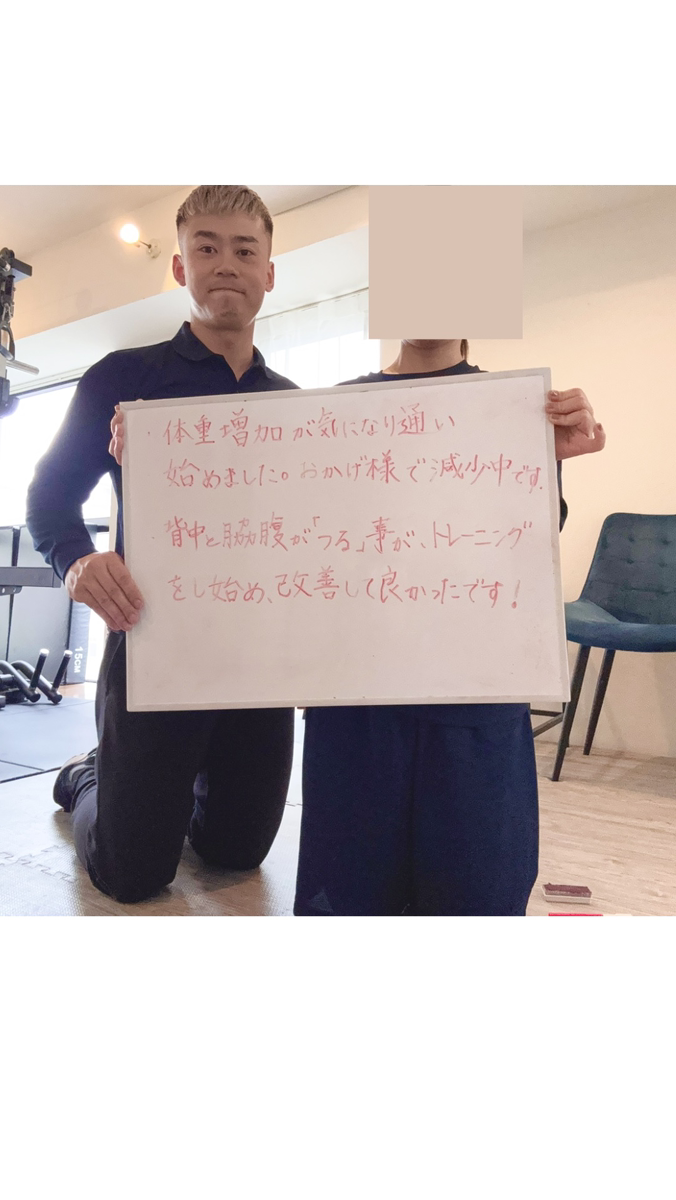 ・体重増加が気になり通い
始めました。おかげ様で減少中です。
・背中と脇腹が「つる」事が、トレーニング
をし始め、改善して良かったです！
15CM